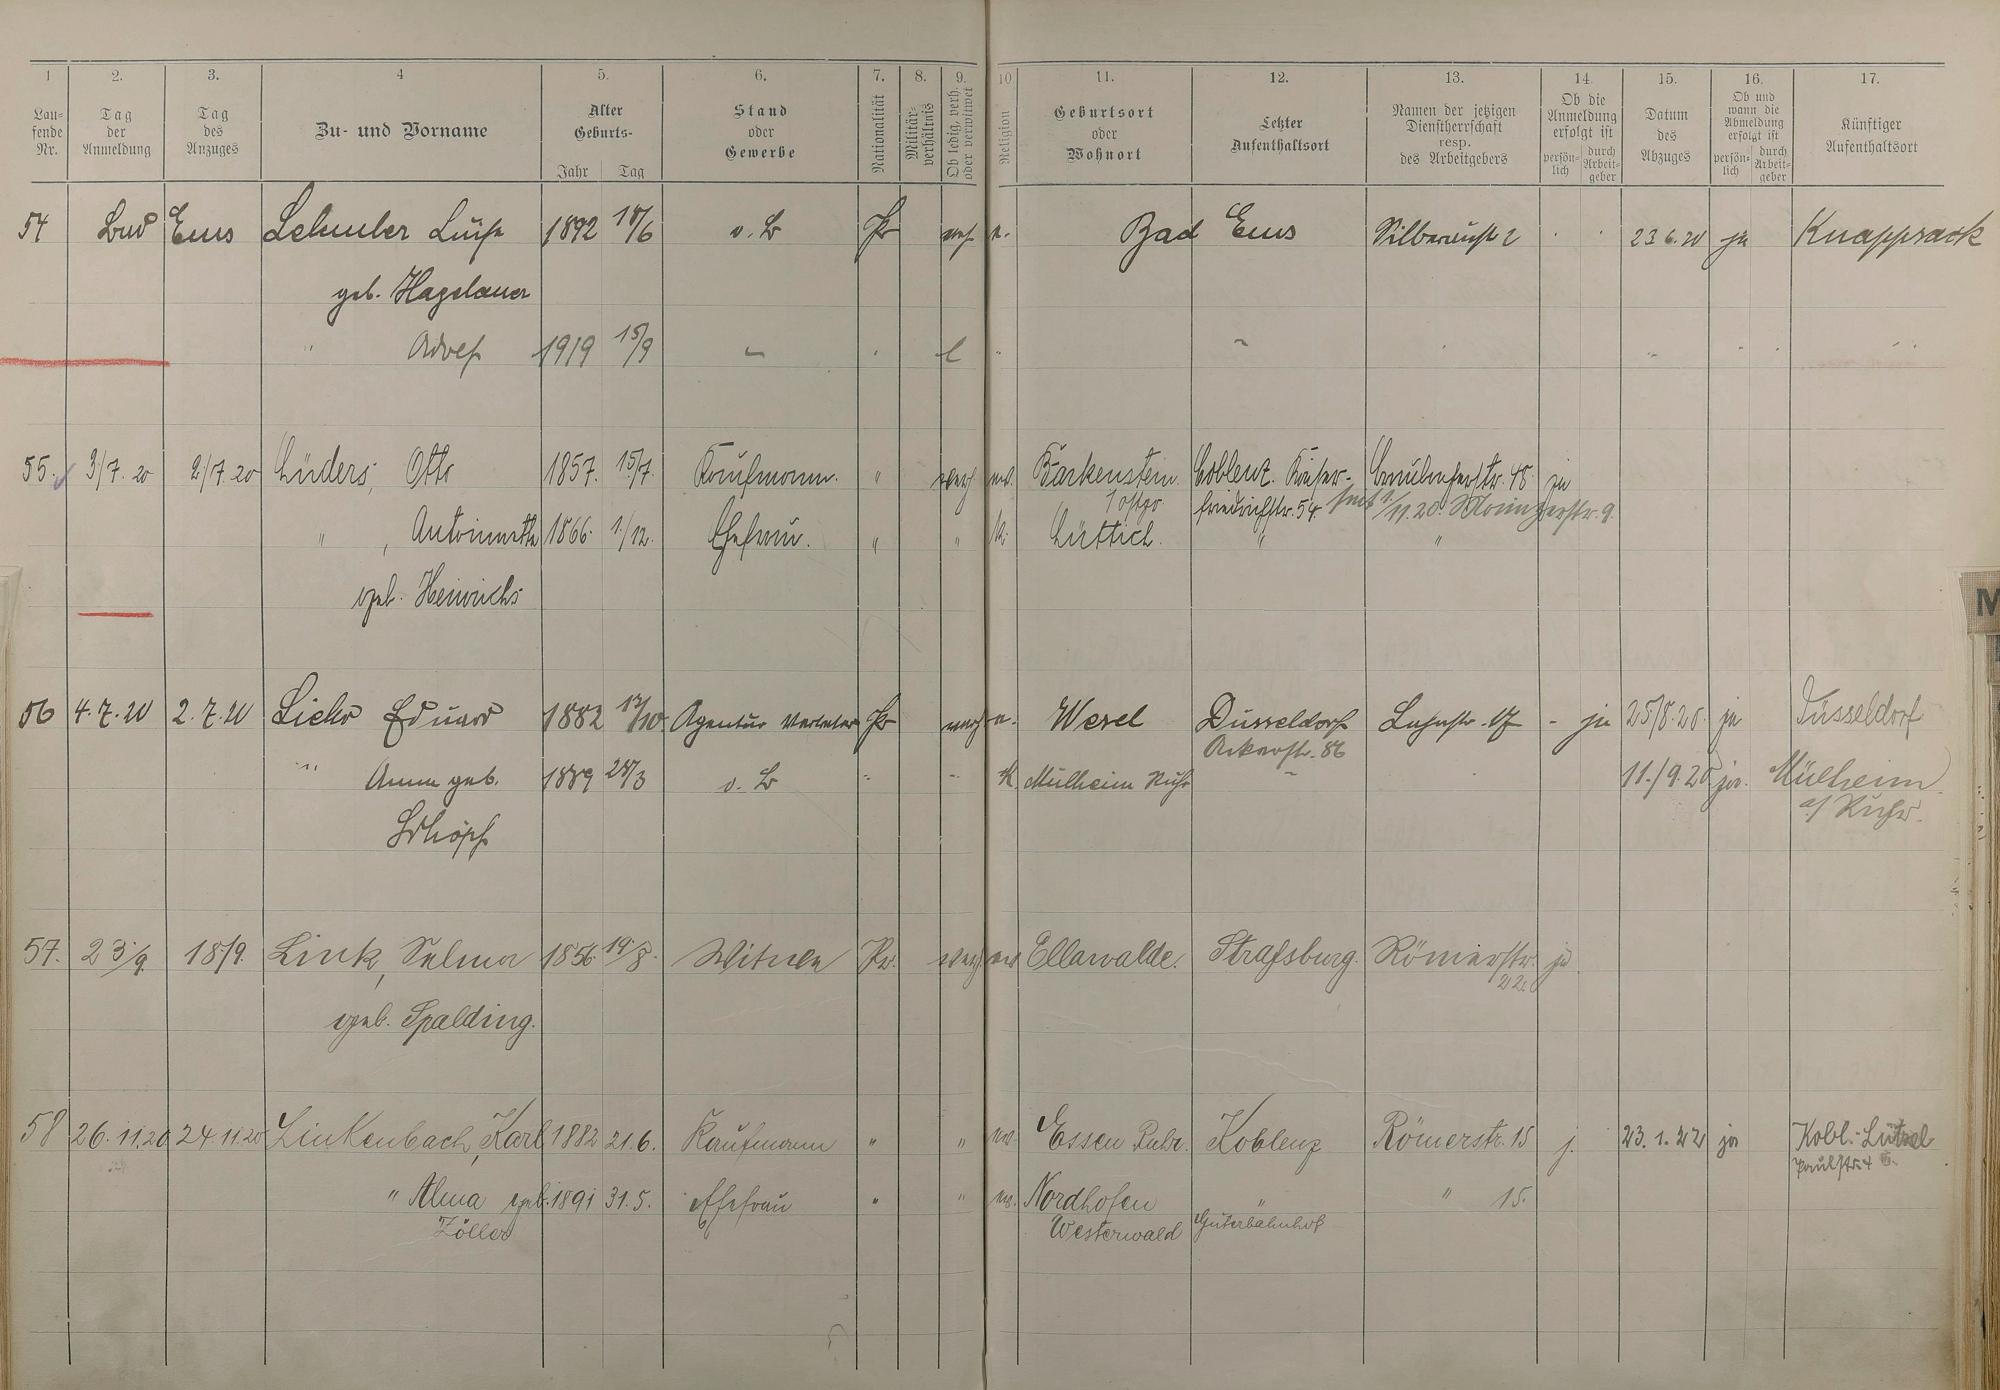 1 2. 3. 4 5. 6. 7. 8. 9. 10 11. 12. 13. 14. 15. 16. 17.
Lau-
fende
Nr.
Tag
der
Anmeldung
Tag
des
Anzuges
Zu- und Vorname
Alter
Geburts-
Jahr Tag
Stand
oder
Gewerbe
Nationalität
Militär-
verhältnis
Ob ledig, verh.
oder verwitwet
Religion
Geburtsort
oder
Wohnort
Letzter
Aufenthaltsort
Namen der jetzigen
Dienstherrschaft
resp.
des Arbeitgebers
Ob die
Anmeldung
erfolgt ist
persön-
lich
durch
Arbeit-
geber
Datum
des
Abzuges
Ob und
wann die
Abmeldung
erfolgt ist
persön-
lich
durch
Arbeit-
geber
Künftiger
Aufenthaltsort
54 Bad Ems Luise 1892 o. B Pr e. Bad Ems 23 6. 20 ja Knappsack
geb. Hagelauer
" Adolf 1919 15/9 l
55. 3/7. 20 2/7. 20 Lüders, Otto 1857. 15/7. Kaufmann. " verh ev. Barkenstein Coblenz. Kaiser- 48. ja
Ostpr friedrichstr. 54. 1/11. 20. Mainzerstr. 9.
" , Antoinette 1866. 1/12. Ehefrau. " " k. Lüttich. " "
geb. Heinrichs
56 4. 7. 20 2. 7. 20 Eduard 1882 Agentur Vertreter Pr verh e. Wesel Düsseldorf - ja 25/8. 20. ja Düsseldorf
Ackerstr. 86
" Anna geb. 1889 28/3 o. B " " k. Mülheim Ruhr 11./9. 20. ja. Mülheim
a/ Ruhr.
Schöpf
57. 23/9. 18/9. Link, Selma 1856. 19/8. Witwe Pr. ev Ellerwalde. Strassburg. Römerstr. ja
geb. Spalding.
58 26. 11. 20 24. 11. 20 Linkenbach, Karl 1882 21. 6. Kaufmann " " ev. Essen Ruhr. Koblenz Römerstr. 15 j. 23. 1. 22 ja Kobl.-Lützel
Paulstr. 4
" Alma geb. 1891 31. 5. Ehefrau " " ev. Nordhofen " " 15.
Zöller Westerwald Güterbahnhof
M